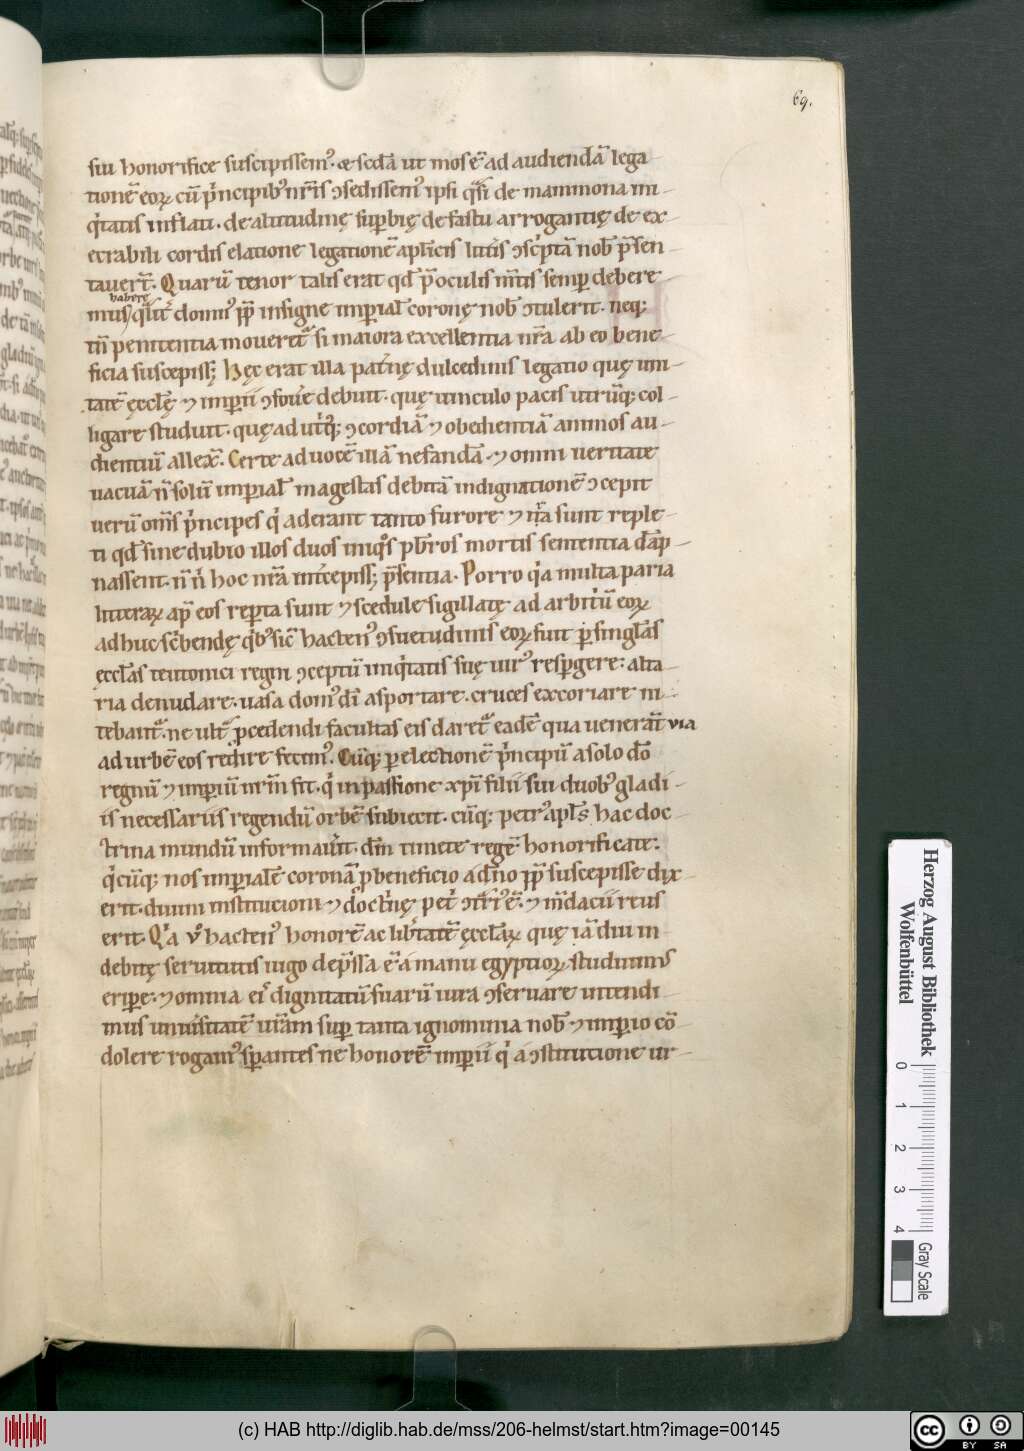 69.
siui honorifice suscipissem᷒. & scdā ut mos ē ad audiendā lega-
tionē eoꝝ cū p'ncipib᷒ nr̄is ꝯsedissem᷒ ipsi q̄si de mammona ini-
q'tatis inflati. de altitudinę sup̱bię de fastu arrogantię de ex-
ecrabili cordis elatione legationē apl̄icis litt̄is ꝯsc'ptā nob̄ p̄sen-
tavert̄. Quarū tenor talis erat qd̄ p̄ oculis m̄tis semp̱ debere-
habere
mus qlit' domin᷒ pp̄ insigne imp̱ial̄ coronę nob̄ ꝯtulerit. neq;
tn̄ penitentia moveret᷑ si maiora excellentia nr̄a ab eo bene-
ficia suscepiss;. Hęc erat illa pat'nę dulcedinis legatio quę uni-
tatē ęccl̄ę ⁊ imp̱ii ꝯfoue᷑ debuit. quę uinculo pacis utrūq; col-
ligare studuit. quę ad ut'q; ꝯcordiā ⁊ obedientiā animos au-
dientiū allex̄. Certe ad uocē illā nefandā ⁊ omni ueritate
uacuā n̄ solū imp̱ial̄ magestas debitā indignationē ꝯcepit
uerū om̄s p'ncipes q' aderant tanto furore ⁊ ira sunt reple-
ti qd̄ sine dubio illos duos iniq°s pb̄ros mortis sententia dāp-
nassent. n̄ n' hoc nr̄a int̄cepiss; p̄sentia. Porro q'a multa paria
litteraꝝ ap̄ eos rep̱ta sunt ⁊ scedule sigillatę ad arbit'ū eoꝝ
adhuc sc'bendę q'b᷒ sic̄ hacten᷒ ꝯsuetudinis eoꝝ fuit p̱ singl̄as
ęccl̄as teutonici regni ꝯceptū iniq'tatis suę uir᷒ resp̱gere: alta-
ria denudare. uasa dom᷒ dī asportare. cruces excoriare ni-
tebant᷑. ne ult̄ p̱cedendi facultas eis daret᷑ eadē qua uenerāt via
ad urbē eos redire fecim᷒. Cūq; p̱ electionē p'ncipū a solo dō
regnū ⁊ imp̱iū nr̄m sit. q' in passione xp̄i filii sui duob᷒ gladi-
is necessariis regendū orbē subiecit. cūq; petr᷒ apl̄s hac doc-
trina mundū informauit. dm̄ timete regē honorificate:
q'cūq; nos imp̱ialē coronā p̱ beneficio a dn̄o pp̄ suscepisse dix-
erit. diuini institucioni ⁊ doct'nę pet' ꝯtri᷒ ē. ⁊ m̄dacii reus
erit. Q'a v° hacten᷒ honorē ac lib'tatē ęccl̄aꝝ quę iā diu in-
debitę seruitutis iugo dep̄ssa ē á manu egyptioꝝ studuim᷒
erip̱e. ⁊ omnia ei᷒ dignitatū suarū iura ꝯseruare intendi-
mus uniu̅sitatē ur̄am sup̱ tanta ignominia nob̄ ⁊ imp̱io cō-
dolere rogam᷒ sp̱antes ne honorē imp̱ii q' a ꝯstitutione ur-
Herzog August Bibliothek
Wolfenbüttel
0 1 2 3 4
Gray Scale
(c) HAB http://diglib.hab.de/mss/206-helmst/start.htm?image=00145
cc BY SA